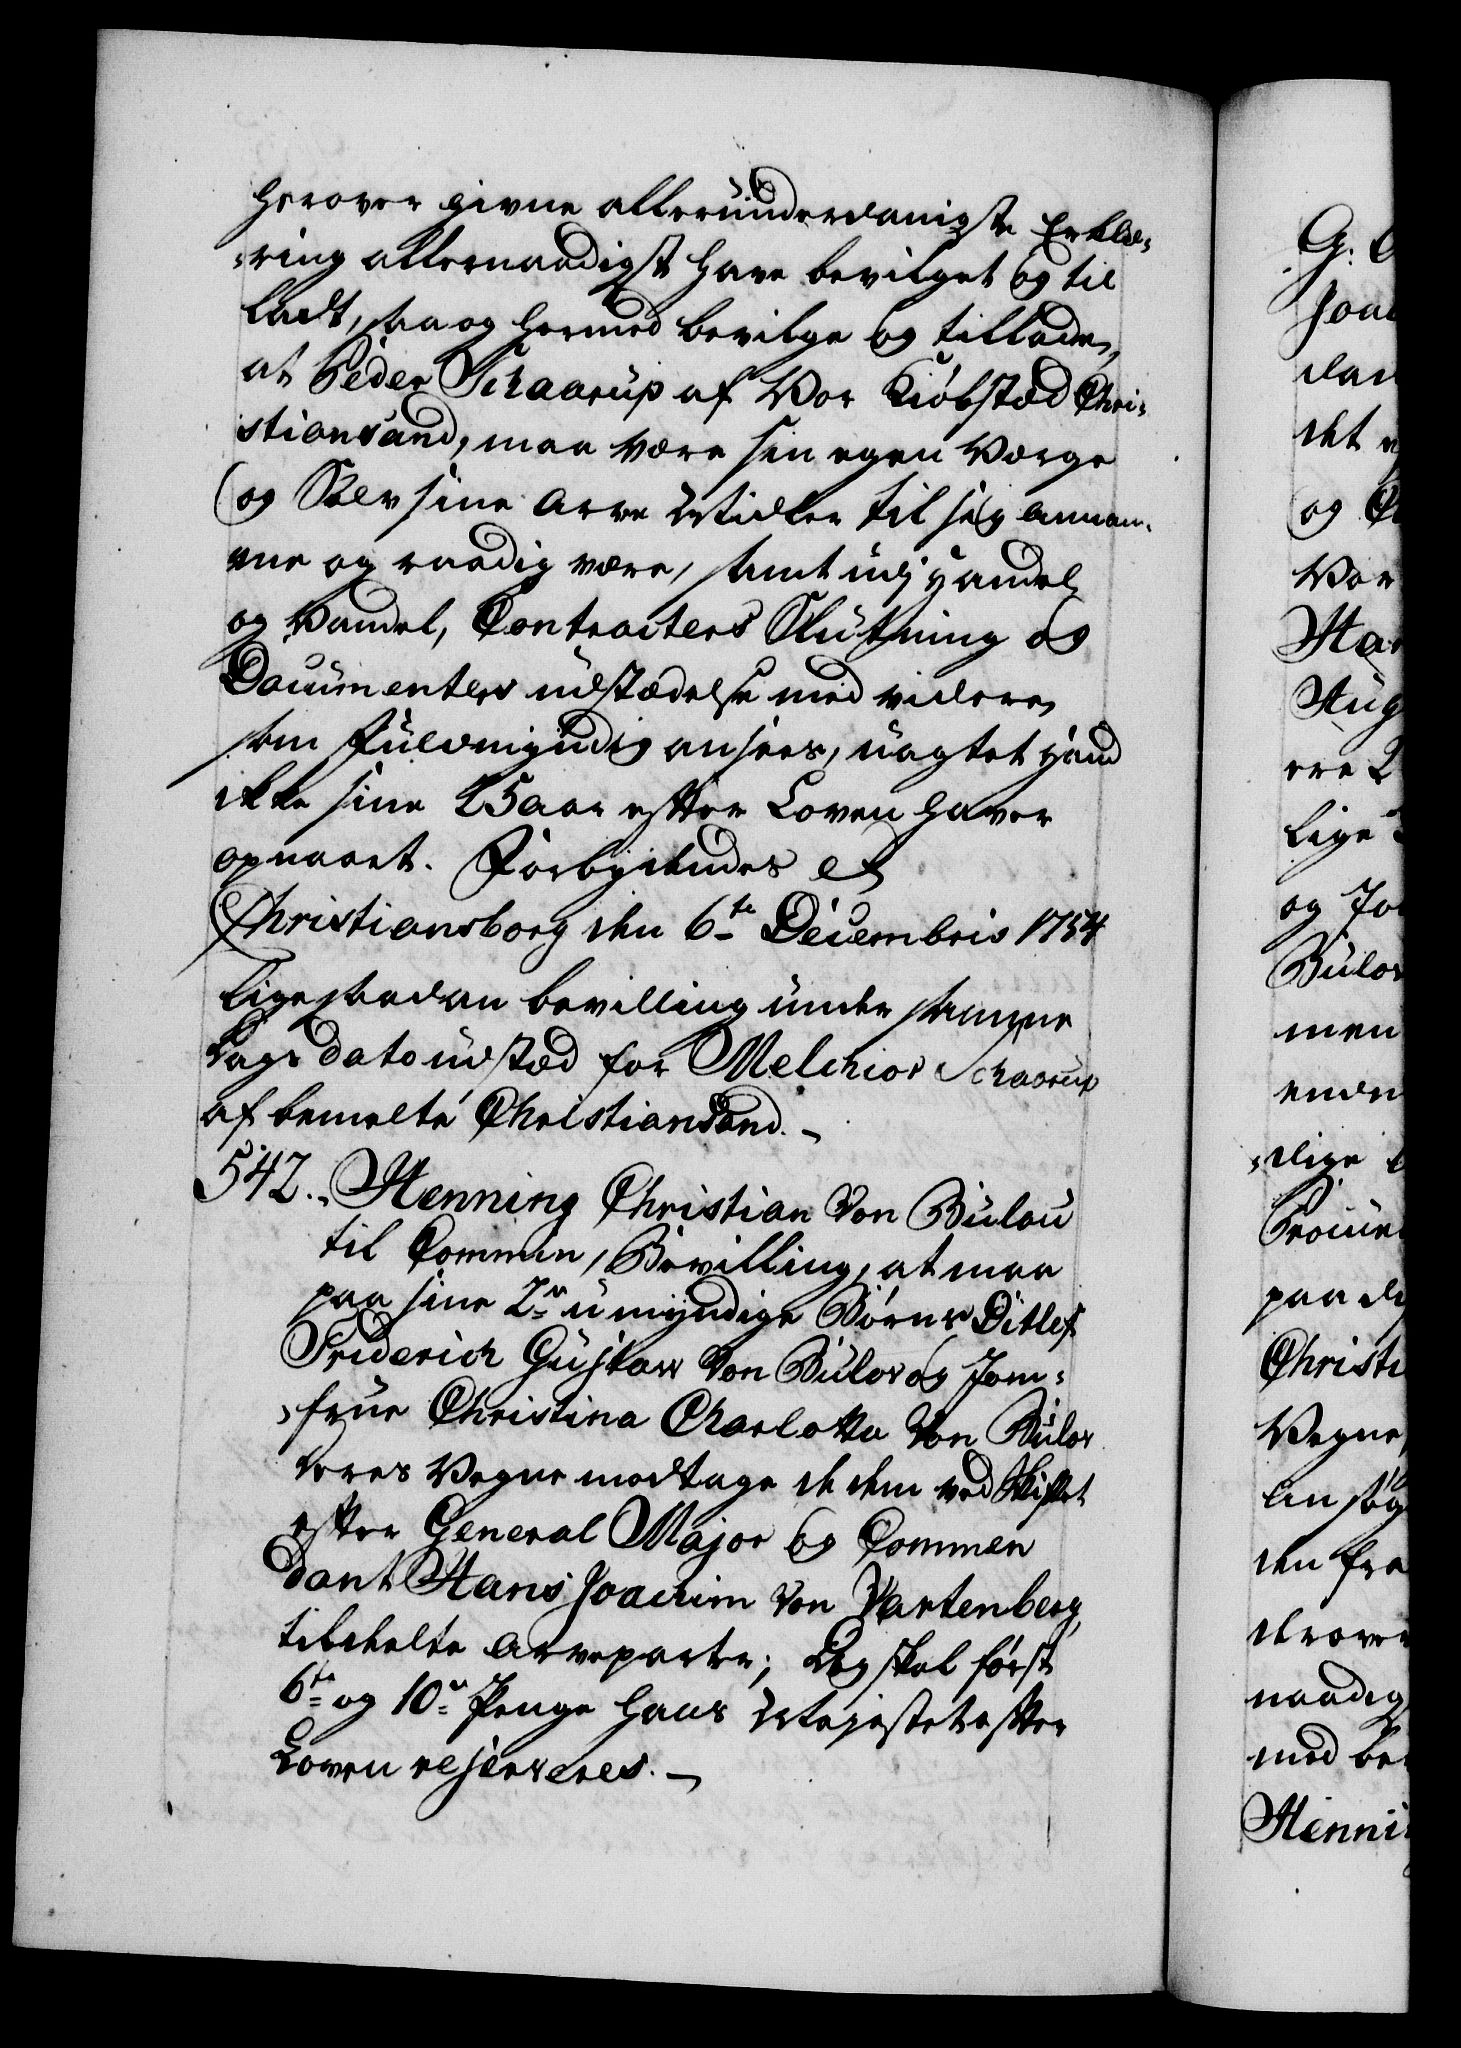 herover givne allerunderdanigste Erklæ-
ring allernaadigst have bevilget og til
ladt, saa og hermed bevilge og tillade,
at Peder Schaarup af Vor Kiøbstæd Chri-
stiansand, maa være sin egen Værge
og Selv sine Arve Midler til sig annam-
me og raadig være, samt udj Handel
og Vandel, Contracters Slutning og
Documenters udstædelse med videre,
som Fuldmyndig ansees, uagtet hand
ikke sine 25 aar efter Loven haver
opnaaet. Forbydendes et
Christiansborg den 6te Decembris 1754
Lige saadan bevilling under samme
Dags dato udstæd for Melchior Schaarup
af bemelte Christiansand. –
542. Henning Christian Von Bülou
til Commin, Bevilling, at maa
paa sine 2de umyndige Børns Ditlef
Friderich Gustav Von Bülov og Jom-
frue Christina Charlotta Von Bülov
deres Vegne modtage de dem ved Skiftet
efter General Major og Commen
dant Hans Joachim Von Wartenberg,
tildeelte Arveparter; Dog skal først
6te og 10de Penge Hans Majestet efter
Loven rejserveres. –
G.
Joac
dan
det
og
Vor
Han
Aug
ere
lige
og
Bülov
men
ende
dige
Procur
paa
Christi
Vegne,
an søg
den fra
derover
naadig
med be
Henni